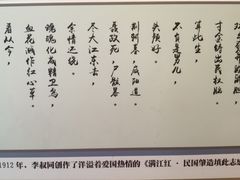 寸金铸出民权脑。
算此生,
不负是男儿,
头颅好。
荆轲墓,咸阳道。
聂政死,尸骸暴。
尽大江东去,
余情还绕。
魂魄化成精卫鸟,
血花溅作红心草。
看从今,
1912年,李叔同创作了洋溢着爱国热情的《满江红·民国肇造》此志